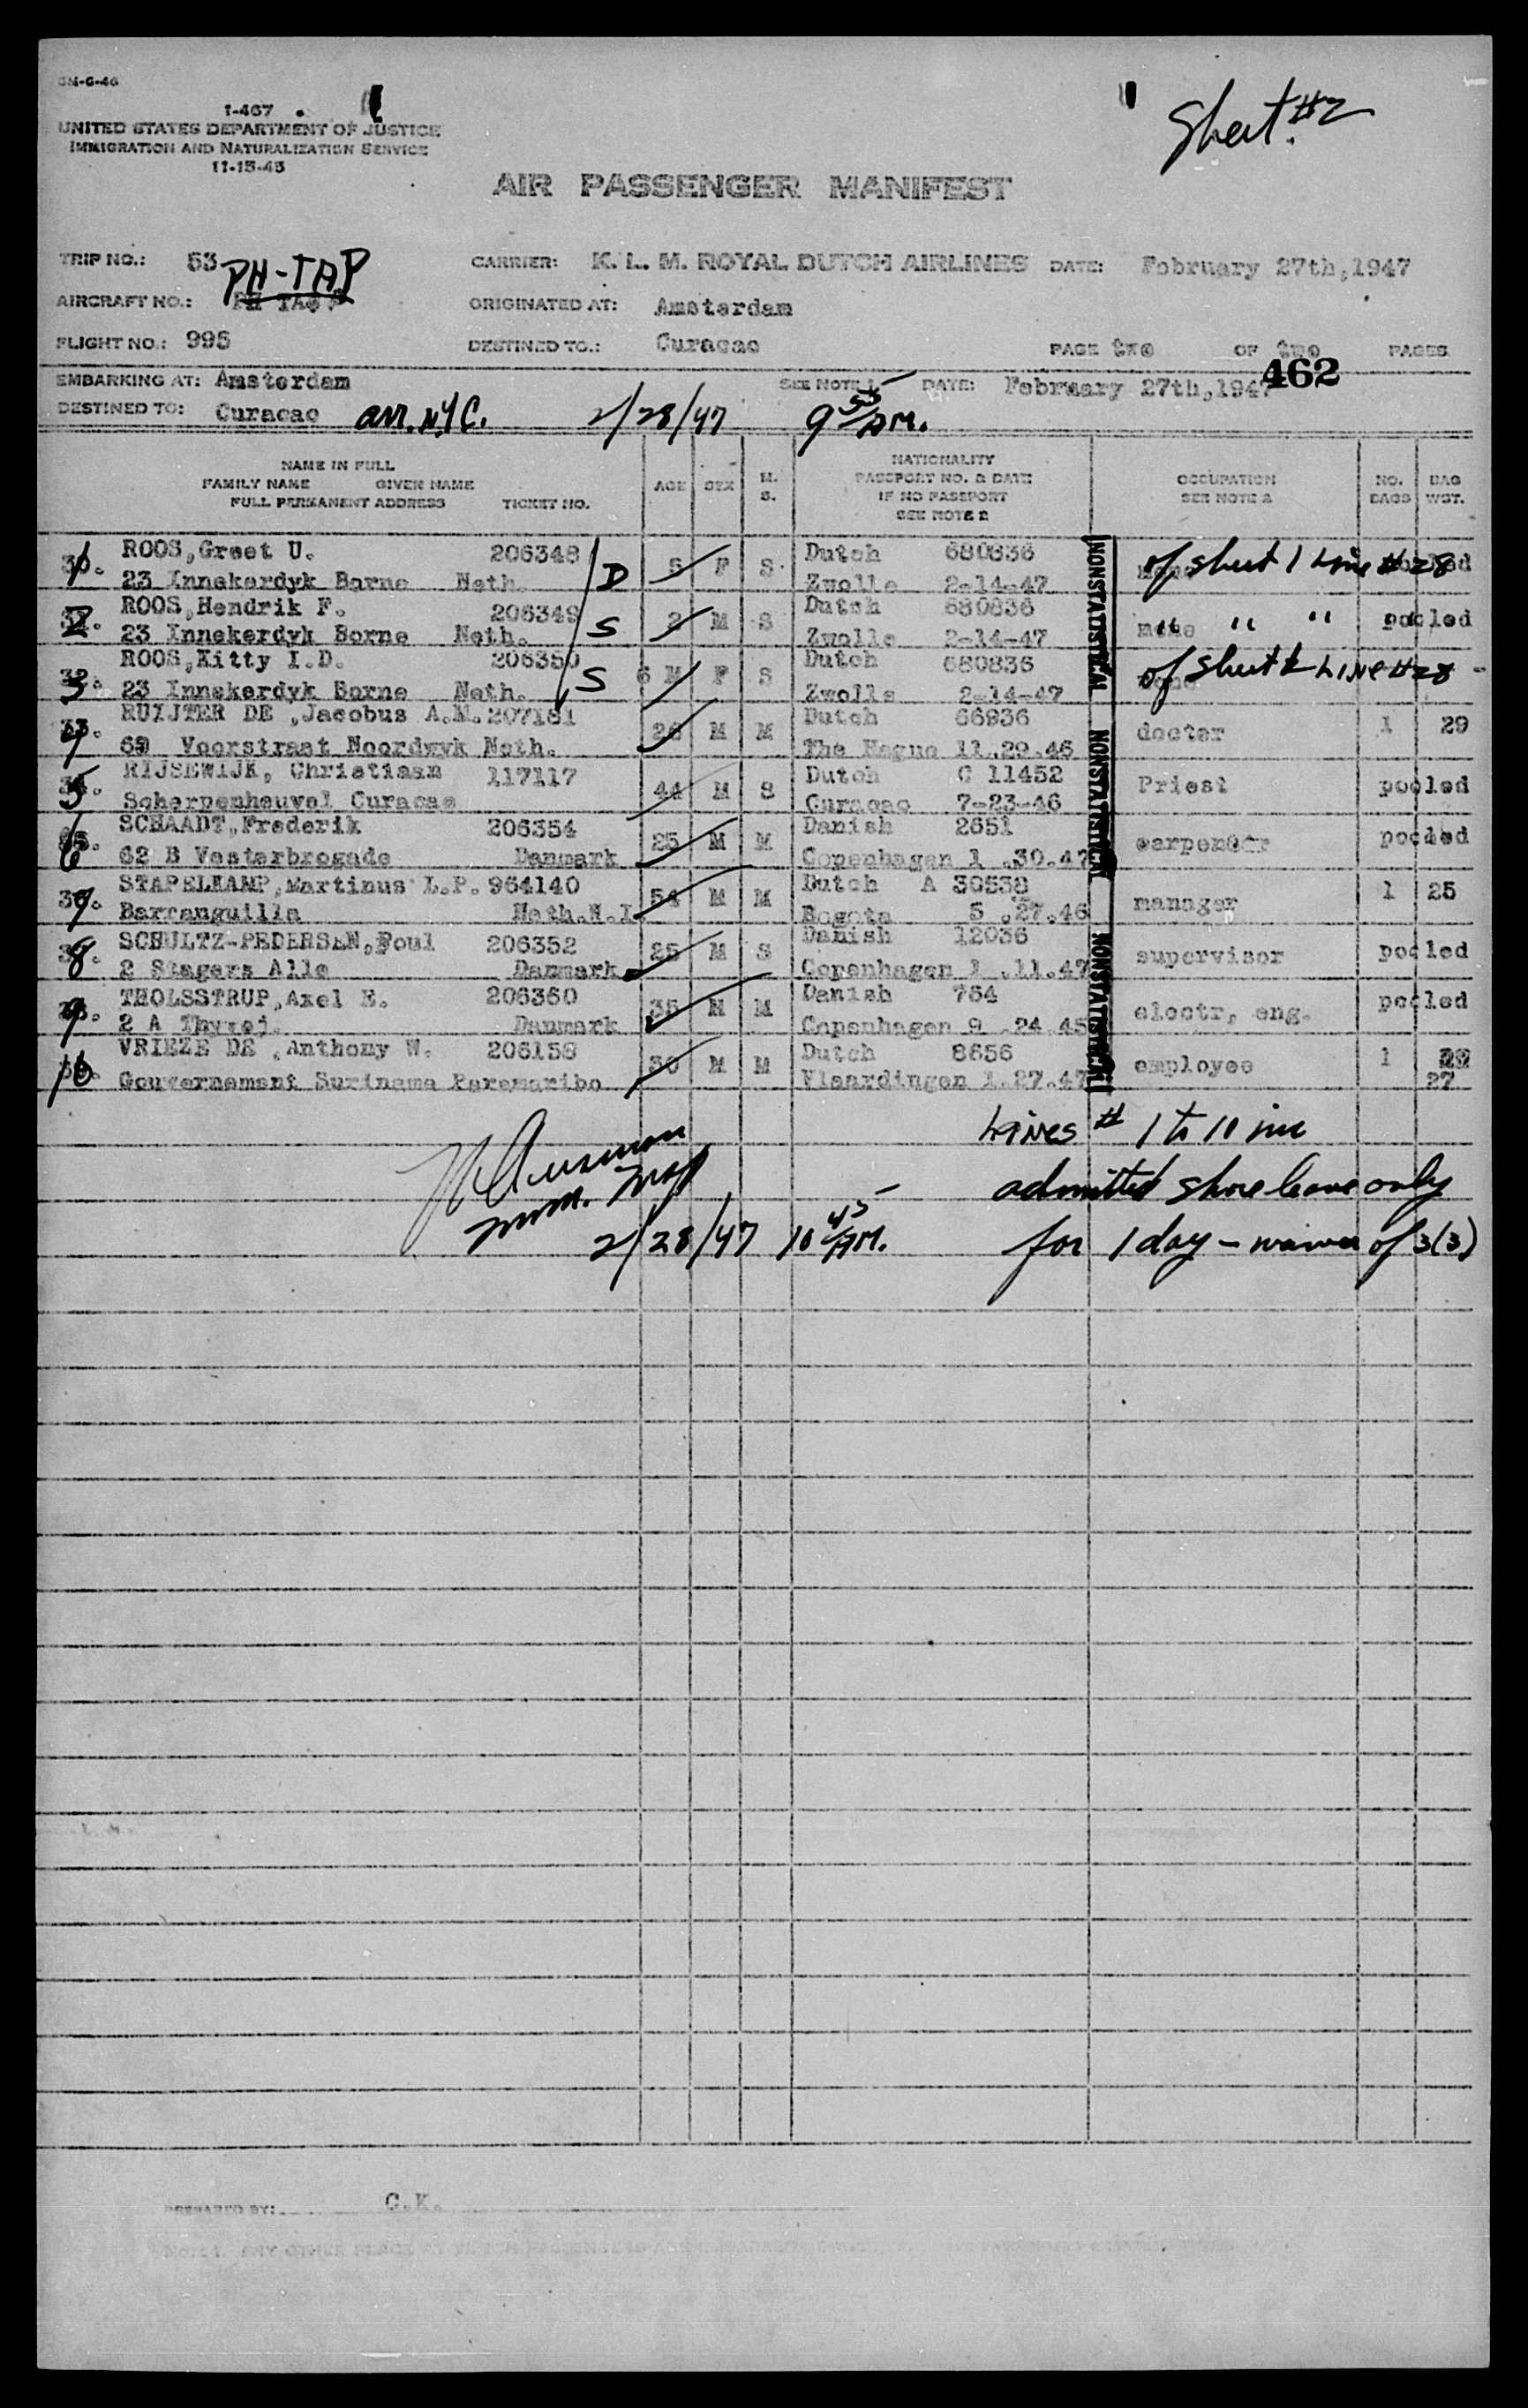 Sheet #2
I-467
UNITED STATES DEPARTMENT OF JUSTICE
IMMIGRATION AND NATURALIZATION SERVICE
11-15-45
AIR PASSENGER MANIFEST
TRIP NO.: 53 CARRIER: K. L. M. ROYAL DUTCH AIRLINES DATE: February 27th,1947
PH-TAP
AIRCRAFT NO.: ORIGINATED AT: Amsterdam
FLIGHT NO.: 995 DESTINED TO.: Curacao PAGE two OF two PAGES
462
EMBARKING AT: Amsterdam SEE NOTE 1 DATE: February 27th,1947
DESTINED TO: Curacao arr. N.Y.C. 2/28/47 9 55 AM.
NAME IN FULL
FAMILY NAME GIVEN NAME
FULL PERMANENT ADDRESS TICKET NO. AGE SEX M. S. NATIONALITY PASSPORT NO. & DATE IF NO PASSPORT SEE NOTE 2 OCCUPATION SEE NOTE 2 NO. BAGS BAG WGT.
1 ROOS,Greet U. 206348 D 5 F S Dutch 680836 of sheet 1 Line #28
23 Innekerdyk Borne Neth. Zwolle 2-14-47
2 ROOS,Hendrik F. 206349 S M S Dutch 680836 none " " " pooled
23 Innekerdyk Borne Neth. Zwolle 2-14-47
3 ROOS,Kitty I.D. 206350 S 6 M F S Dutch 680836 of sheet 1 Line #28
23 Innekerdyk Borne Neth. Zwolle 2-14-47
4 RUIJTER DE ,Jacobus A.M. 207181 26 M M Dutch 66936 doctor 1 29
Voorstraat Noordwyk Neth. The Hague 11.29.46
5 RIJSEWIJK, Christiaan 117117 44 M S Dutch C 11452 Priest pooled
Scherpenheuvel Curacao Curacao 7-23-46
6 SCHAADT,Frederik 206354 25 M M Danish 2651 carpenter pooled
62 B Vesterbrogade Danmark Copenhagen 1 .30.47
7 STAPELKAMP,Martinus L.P. 964140 54 M M Dutch A 30538 manager 1 25
Barranquilla Neth.N.I. Bogota 5 .27.46
8 SCHULTZ-PEDERSEN,Poul 206352 25 M S Danish 12036 supervisor pooled
2 Stagers Alle Danmark Copenhagen 1 .11.47
9 THOLSSTRUP,Axel E. 206360 35 M M Danish 764 electr, eng. pooled
2 A Danmark Copenhagen 9 .24.45
10 VRIEZE DE ,Anthony W. 206158 30 M M Dutch 8656 employee 1 27
Gouvernement Suriname Paramaribo Vlaardingen 1.27.47
NONSTATISTICAL
NONSTATISTICAL
NONSTATISTICAL
Lines # 1 to 10 inc
admitted shore leave only
for 1 day - waiver of 3(3)
2/28/47 10 45 AM.
PREPARED BY: C.K.